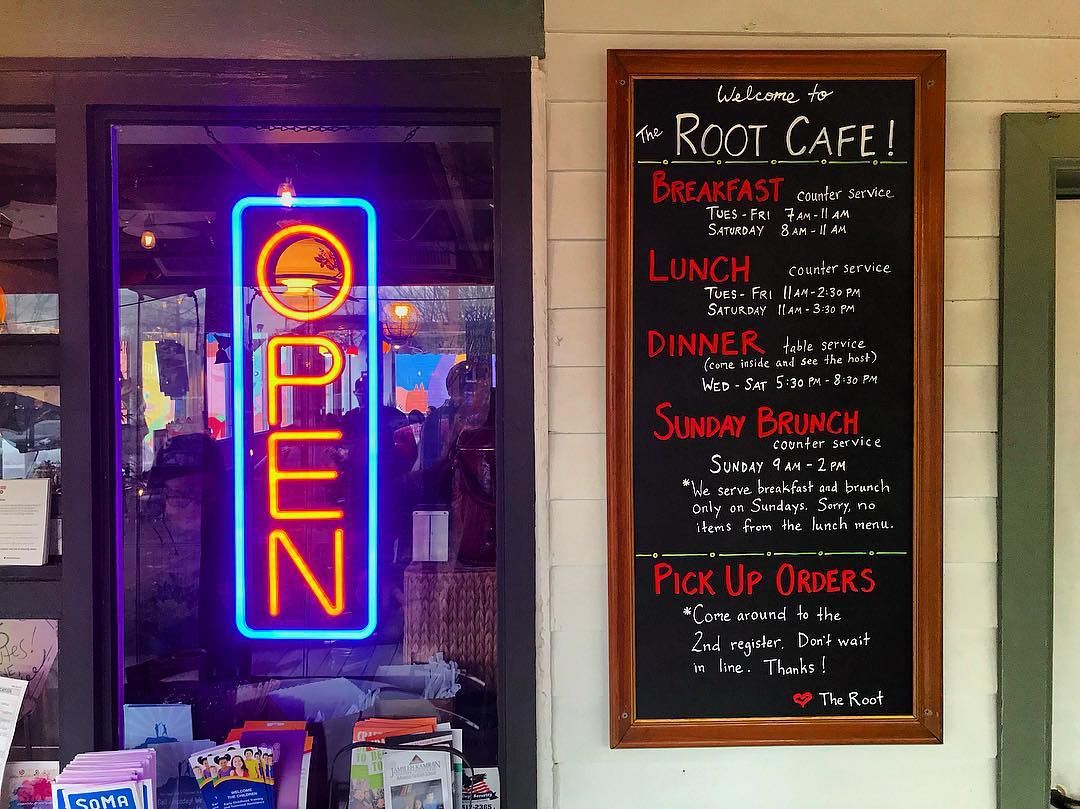 OPEN
Welcome to
The ROOT CAFE!
BREAKFAST counter service
TUES - FRI 7 AM - 11 AM
SATURDAY 8 AM - 11 AM
LUNCH counter service
TUES - FRI 11 AM - 2:30 PM
SATURDAY 11 AM - 3:30 PM
DINNER table service
(come inside and see the host)
WED - SAT 5:30 PM - 8:30 PM
SUNDAY BRUNCH
counter service
SUNDAY 9 AM - 2 PM
*We serve breakfast and brunch
only on Sundays. Sorry, no
items from the lunch menu.
PICK UP ORDERS
*Come around to the
2nd register. Don't wait
in line. Thanks!
The Root
SOMA
WELCOME
THE CHILDREN